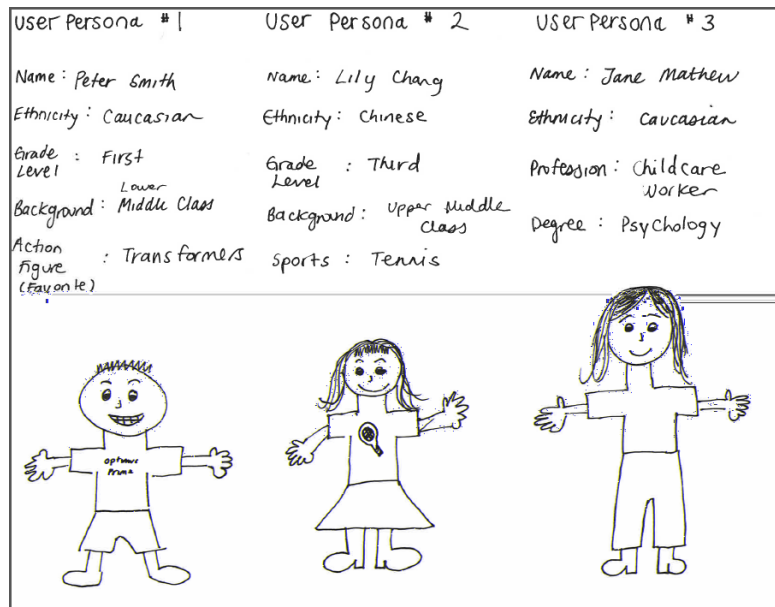 User Persona #1
Name: Peter Smith
Ethnicity: Caucasian
Grade Level: First
Background: Lower Middle Class
Action Figure (Favorite): Transformers
User Persona # 2
Name: Lily Chang
Ethnicity: Chinese
Grade Level: Third
Background: Upper Middle Class
Sports: Tennis
User Persona #3
Name: Jane Mathew
Ethnicity: Caucasian
Profession: Childcare Worker
Degree: Psychology
Optimus
Prime